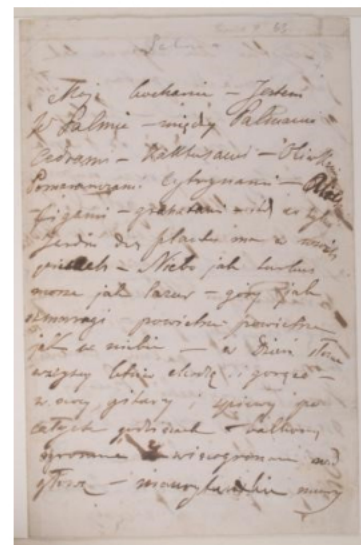 Palma
Moje kochanie – Jestem
w Palmie – między Palmami
Cedrami – Kaktusami – Oliwkami
Pomarańczami Cytrynami –
Figami – granatami itd co tylko
Jardin des plantes ma w swoich
piecach – Niebo jak turkus
morze jak lazur – góry jak
szmaragi – powietrze powietrze
jak w niebie – w dzień słońce
wszyscy letnio chodzą i gorąco –
w nocy gitary i śpiewy po
całych godzinach – balkony
ogromne z winogronami nad
głową – maurytańskie mury